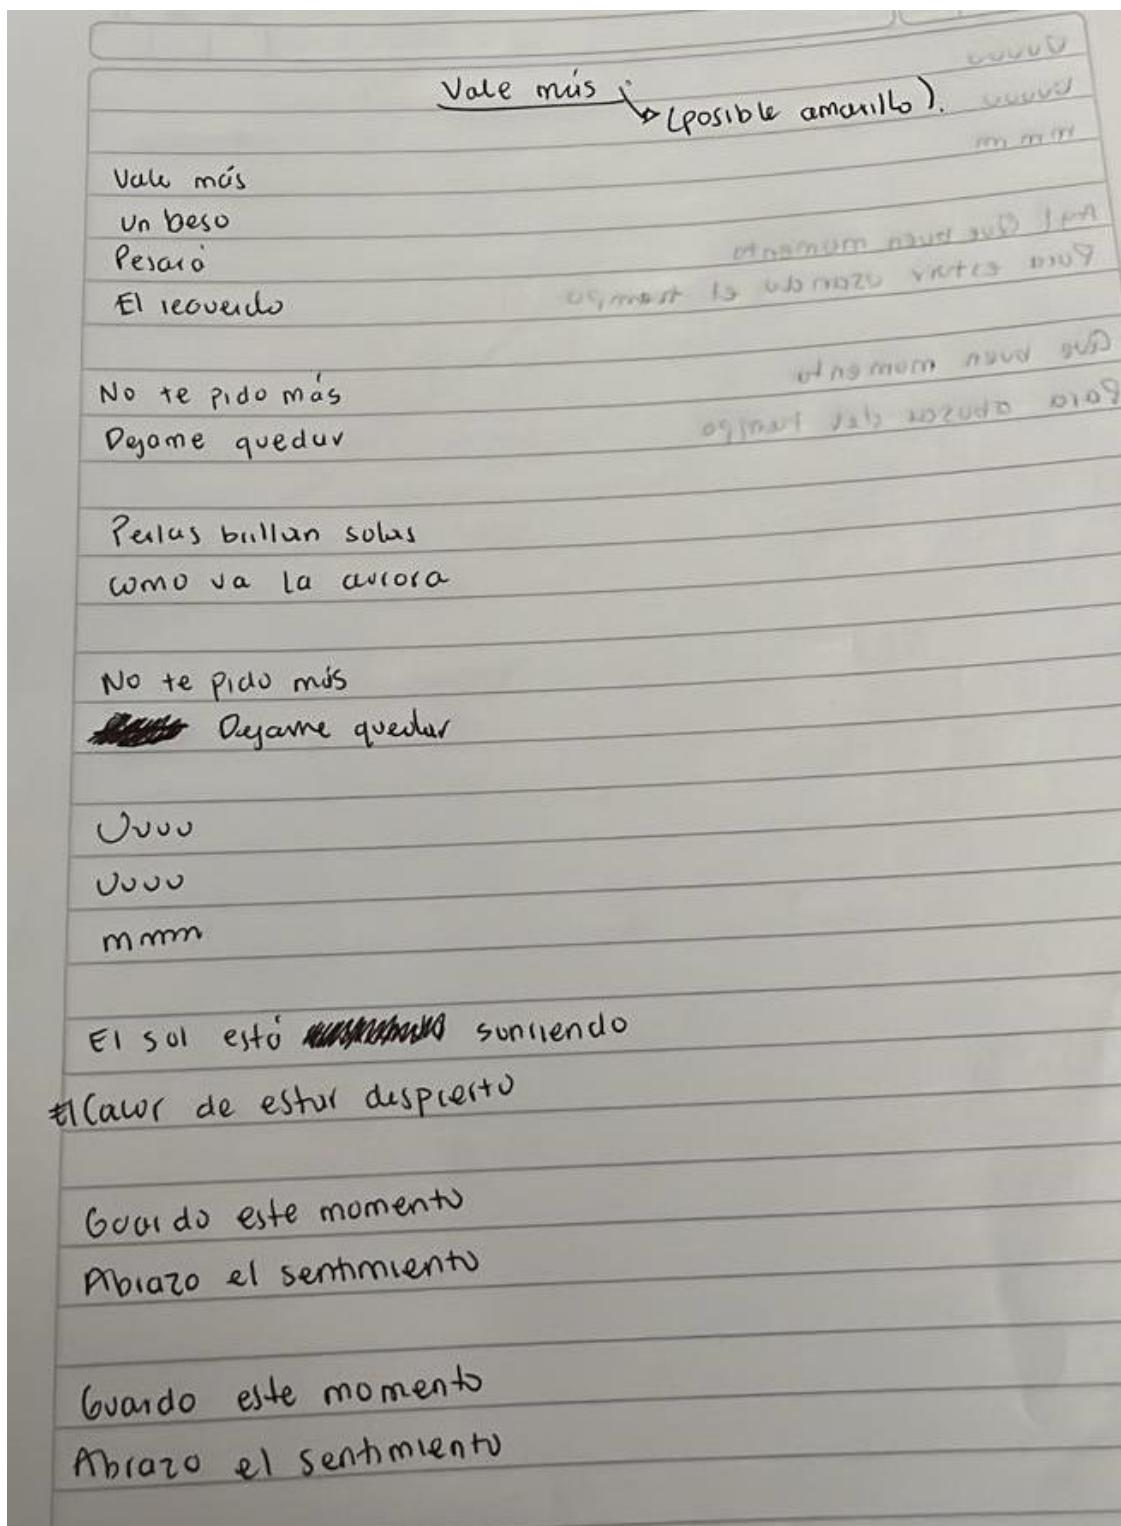 Vale más
↳ (posible amarillo).
Vale más
un beso
Pesará
El recuerdo
No te pido más
Dejame quedar
Perlas brillan solas
como va la aurora
No te pido más
Dejame quedar
Uuuu
Uuuu
mmm
El sol está sonriendo
El Calor de estar despierto
Guardo este momento
Abrazo el sentimiento
Guardo este momento
Abrazo el sentimiento